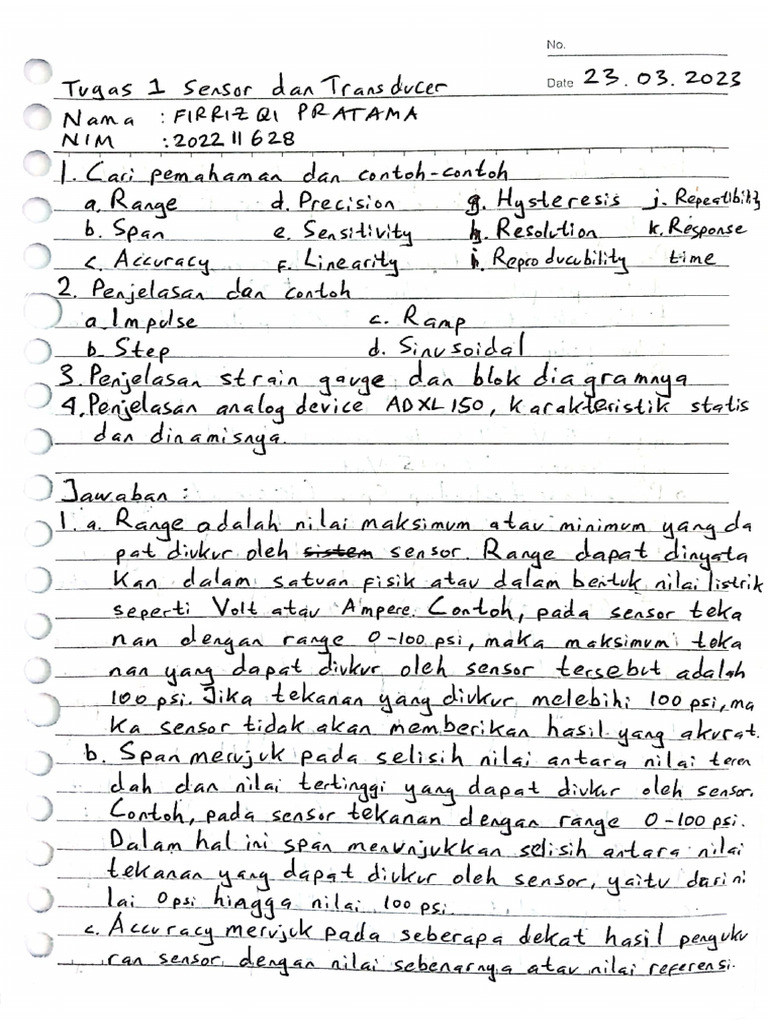 No.
Date 23.03.2023
Tugas 1 Sensor dan Transducer
Nama : FIRRIZQI PRATAMA
NIM : 202211628
1. Cari pemahaman dan contoh-contoh
a. Range d. Precision g. Hysteresis j. Repeatibility
b. Span e. Sensitivity h. Resolution k. Response
c. Accuracy f. Linearity i. Reproducubility time
2. Penjelasan dan contoh
a. Impulse c. Ramp
b. Step d. Sinusoidal
3. Penjelasan strain gauge dan blok diagramnya
4. Penjelasan analog device ADXL150, karakteristik statis
dan dinamisnya.
Jawaban :
1. a. Range adalah nilai maksimum atau minimum yang da
pat diukur oleh sistem sensor. Range dapat dinyata
kan dalam satuan fisik atau dalam bentuk nilai listrik
seperti Volt atau Ampere. Contoh, pada sensor teka
nan dengan range 0-100 psi, maka maksimum teka
nan yang dapat diukur oleh sensor tersebut adalah
100 psi. Jika tekanan yang diukur melebihi 100 psi, ma
ka sensor tidak akan memberikan hasil yang akurat.
b. Span merujuk pada selisih nilai antara nilai teren
dah dan nilai tertinggi yang dapat diukur oleh sensor.
Contoh, pada sensor tekanan dengan range 0-100 psi.
Dalam hal ini span menunjukkan selisih antara nilai
tekanan yang dapat diukur oleh sensor, yaitu dari ni
lai 0 psi hingga nilai 100 psi.
c. Accuracy merujuk pada seberapa dekat hasil penguku
ran sensor dengan nilai sebenarnya atau nilai referensi.